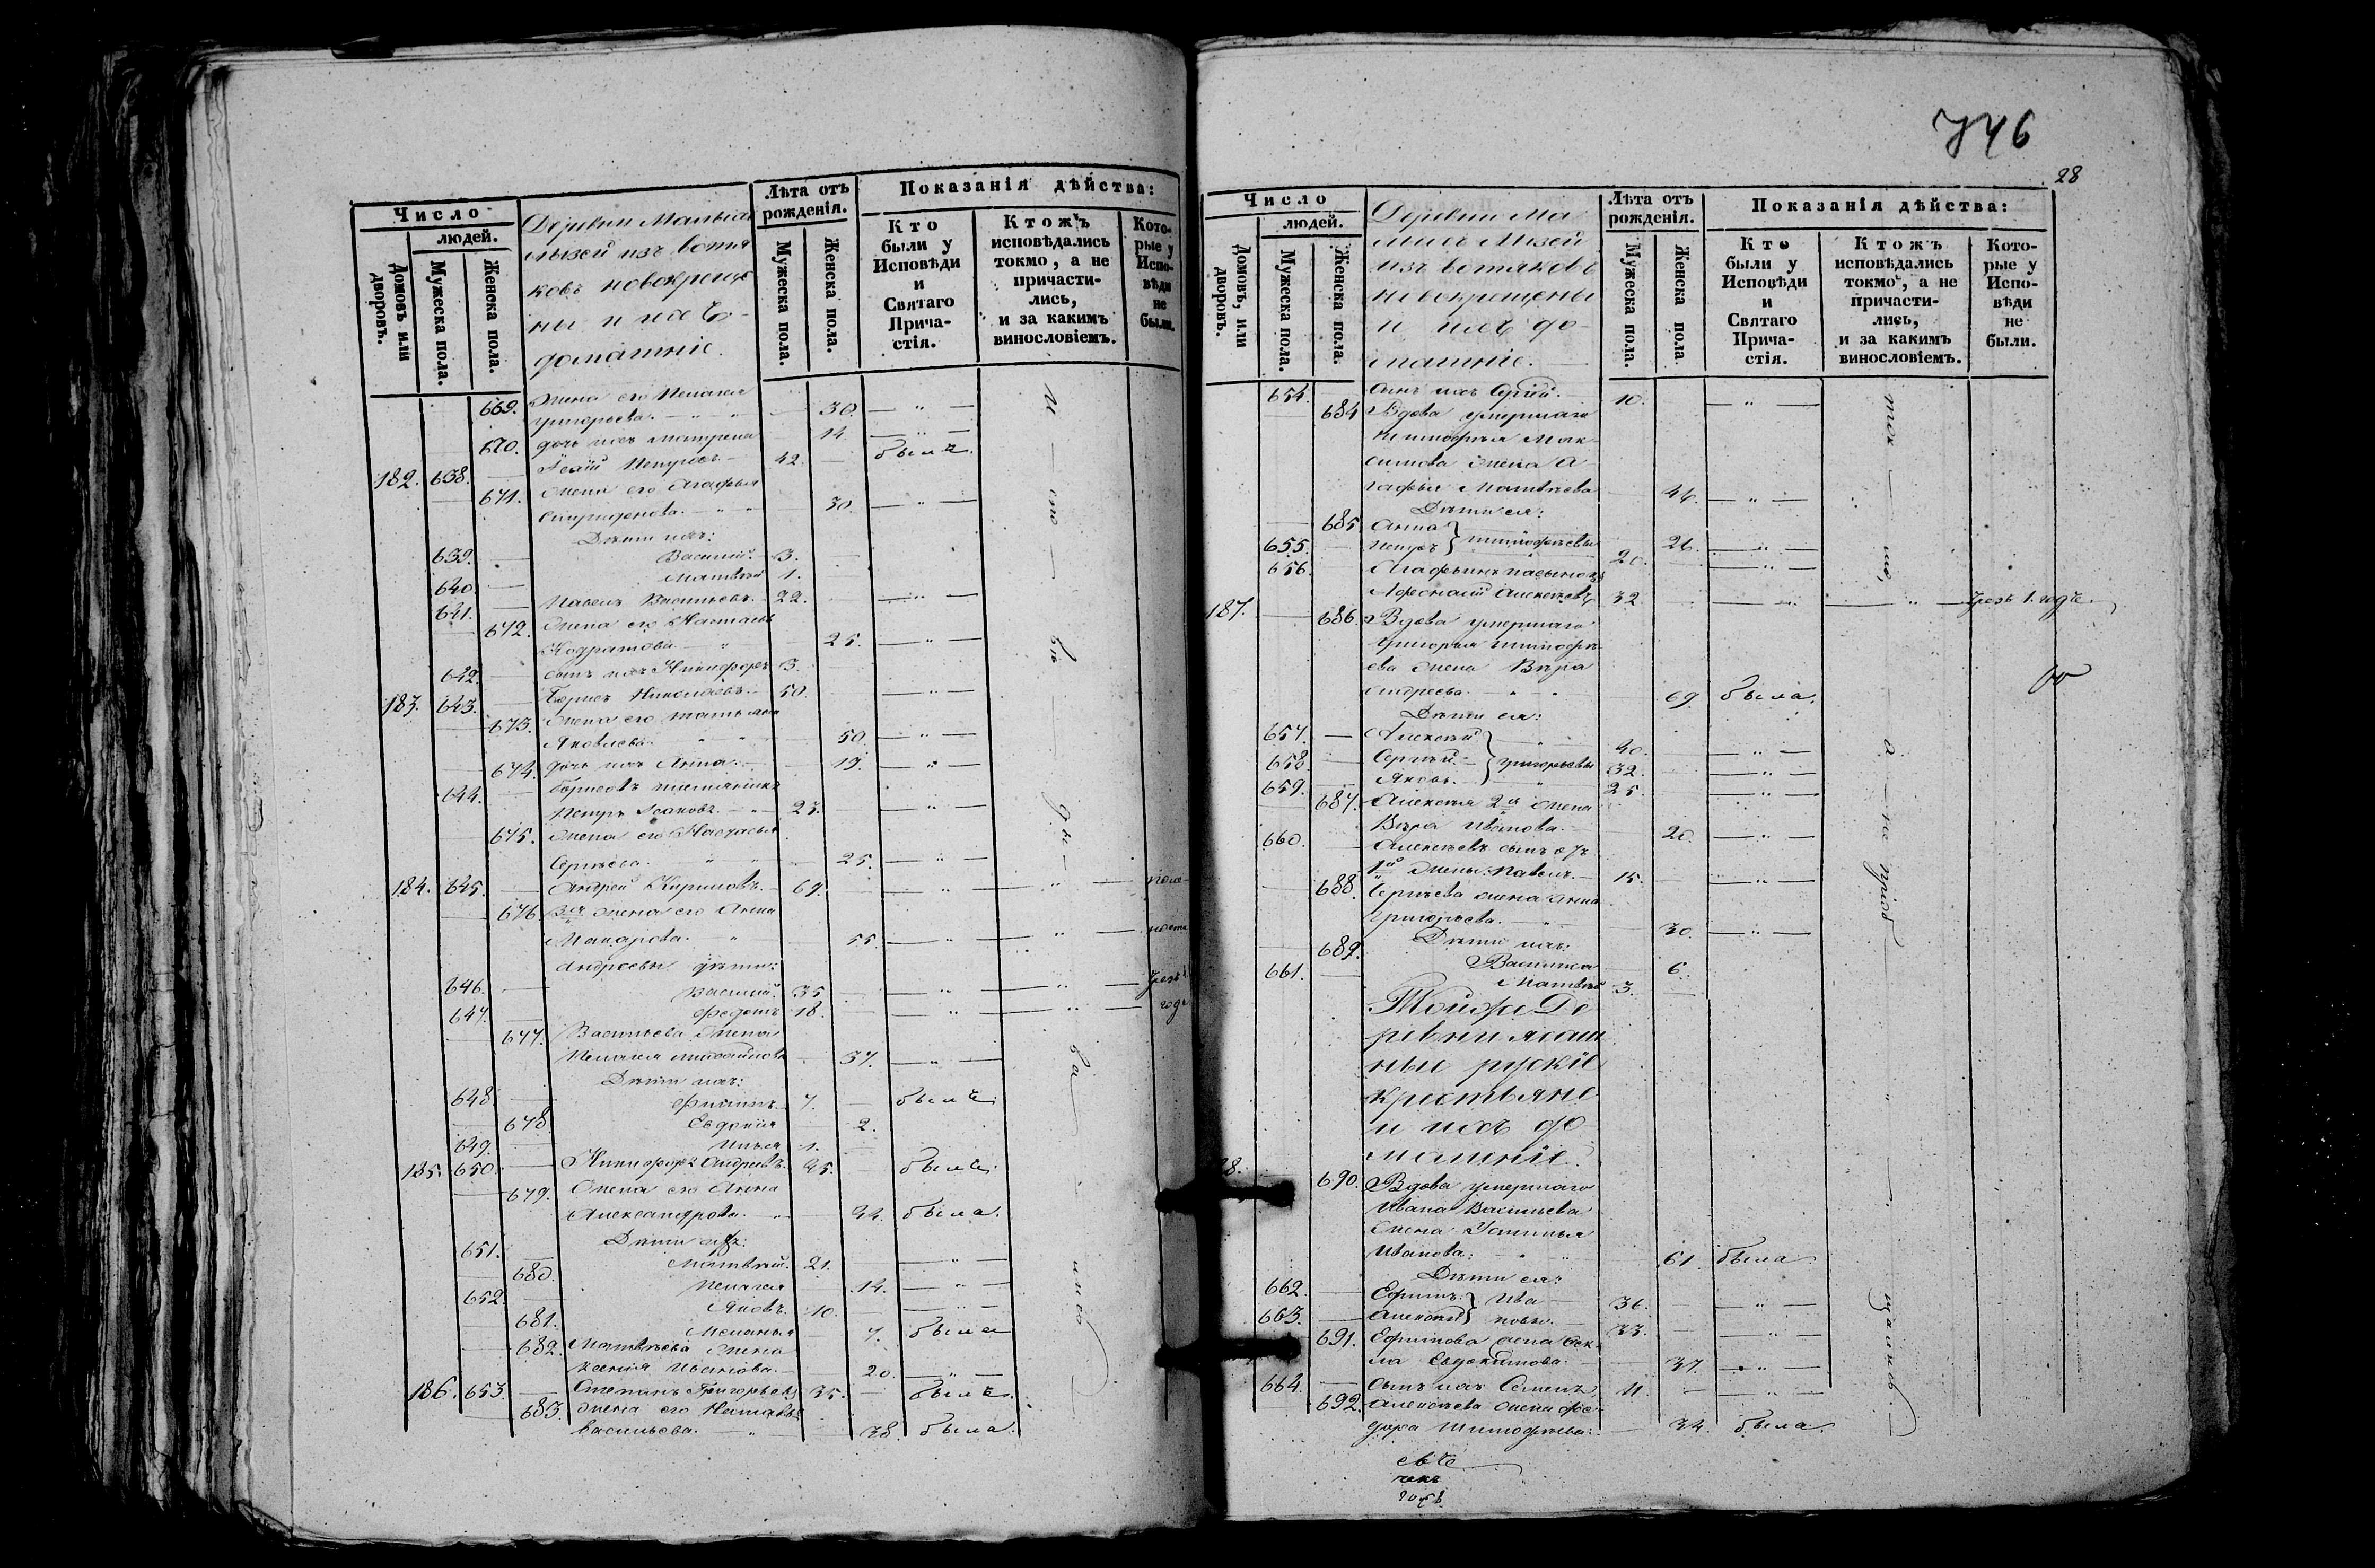 746
28
Число
людей.
Домовъ или дворовъ.
Мужеска пола.
Женска пола.
Деревни
изъ вотя
ковъ новокреще
ны и ихъ
домашніе.
Лѣта отъ рожденія.
Мужеска пола.
Женска пола.
Показанія дѣйства:
Кто были у Исповѣди и Святаго Прича- стія.
Ктожъ исповѣдались токмо, а не причасти- лись, и за какимъ винословіемъ.
Кото- рые у Испо- вѣди не были.
669. Жена его Пелагея
Григорьева. 30.
670. дочь ихъ Матрена 14.
182. 638. Петровъ 42. былъ.
671. Жена его Агафья
Спиридонова. 30.
Дѣти ихъ:
639. Василій. 3.
640. Матвѣй 1.
641. Павелъ Васильевъ. 22.
672. Жена его Настасья
Кодратова 25.
642. сынъ ихъ Никифоръ 3.
183. 643. Борисъ Николаевъ. 50.
673. Жена его Татьяна
Яковлева. 50.
674. дочь ихъ Анна. 19.
644. Борисовъ племянникъ
Петръ Исаковъ. 23.
675. Жена его Настасья
Сергѣева. 25.
184. 645. Андрей Кириловъ. 67.
676. жена его Анна
Макарова. 55.
Андреевы дѣти:
646. Василій. 35.
647. Федотъ 18.
677. Васильева жена
Пелагея Михайлова 37.
Дѣти ихъ:
648. Филипъ. 7. былъ.
678. Евдокія 2.
649. Илья 1.
185. 650. Никифоръ Андреевъ. 45. былъ.
679. Жена его Анна
Александрова. 44. была.
Дѣти ихъ:
651. Матвѣй. 21.
680. Пелагея 14.
652. Яковъ. 10.
681. Меланья 7. была
682. Матвѣева жена
Ксенія Иванова. 20.
186. 653. Степанъ Григорьевъ 35. былъ.
683. Жена его Наталья
Васильева. 38. была.
Число
людей.
Домовъ, или дворовъ.
Мужеска пола.
Женска пола.
Деревни Ма
изъ вотяковъ
новокрещены
и ихъ до-
машніе.
Лѣта отъ рожденія.
Мужеска пола.
Женска пола.
Показанія дѣйства:
Кто были у Исповѣди и Святаго Прича- стія.
Ктожъ исповѣдались токмо, а не причасти- лись, и за какимъ винословіемъ.
Кото- рые у Испо- вѣди не были.
654. сынъ ихъ Сергій. 10.
684 Вдова умершаго
Тимофея Мак-
симова жена А-
гафья Матвѣева 44.
Дѣти ея:
685 Анна 26.
655. Петръ } Тимофеевы 20.
656. Агафьинъ пасынокъ
Афонасій Алексѣевъ 32. чрезъ 1. годъ.
187. 686. Вдова умершаго
Григорья Тимофе
ева жена Вѣра
Андреева. 69. была.
Дѣти ея:
657. Алексѣй 40.
658. Сергѣй } Григорьевы 32.
659. Яковъ. 25.
687. Алексѣя 2я жена
Вѣра Иванова. 20.
660. Алексѣевъ сынъ съ
1й жены: Павелъ. 15.
688. Сергѣева жена Анна
Григорьева. 30.
Дѣти ихъ:
689. Василиса 6.
661. Матвѣй 3.
Тойже Де
ревни ясаш
ные рускіе
крестьяне
и ихъ до
машніе.
690. Вдова умершаго
Ивана Васильева
жена Устинья
Иванова. 61. была
Дѣти ея:
662. Ефимъ } Ива 36.
663. Алексѣй } новы. 33.
691. Ефимова жена Фек-
ла Евдокимова. 37.
664. сынъ ихъ Семенъ 11.
692. Алексѣева жена Фе-
дора Тимофѣева. 34. была.